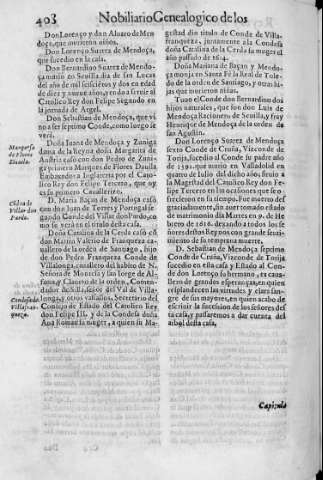 408 Nobiliario Genealogico de los
Don Lorenço y don Aluaro de Men
doça, que murieron niños.
Don Lorenço Suarez de Mendoça,
que sucedio en la casa.
Don Bernardino Suarez de Mendo-
ça murio en Seuilla dia de san Lucas
del año de mil seiscientos y dos en edad
de diez y nueue años, yendo a seruir al
Catolico Rey don Felipe Segundo en
la jornada de Argel.
Don Sebastian de Mendoça, que vi
no a ser septimo Conde, como luego se
verà.
Doña Iuana de Mendoça y Zuñiga
dama de la Reyna doña Margarita de
Austria casò con don Pedro de Zuñi-
ga primero Marques de Flores Dauila
Embaxador a Inglaterra por el Cato-
lico Rey don Felipe Tercero, que oy
es su primero Cauallerizo.
D. Maria Baçan de Mendoça casò
con don Iuan de Tauera y
Conde del Villar don Pardo, co-
mo se verà en el titulo desta casa.
Doña Catalina de la Cerda casò cõ
don Martin Valerio de Franqueza ca-
uallero de la orden de Santiago, hijo
de don Pedro Franqueza Conde de
Villalonga, cauallero del habito de N.
Señora de Montesa y san Iorge de Al-
fama, y Clauero de la orden, Comen-
dador de Silla, señor del Val de Villa-
longa, y otros vassallos, Secretario del
Consejo de Estado del Catolico Rey
don Felipe III. y de la Condesa doña
Ana
Marquesa
de Flores
Dauila.
Cõdesa de
Villar don
Pardo.
Condesa de
Villafran-
queza.
gestad diò titulo de Conde de Villa-
franqueza, juramente a la Condesa
doña Catalina de la Cerda su muger el
año passado de 1614.
Doña Mariana de Baçan y Mendoça
monja en Santa Fè la Real de Tole-
do de la orden de Santiago, y otras hi-
jas que murieron niñas.
Tuuo el Conde don Bernardino dos
hijos naturales, que son don Luis de
Mendoça Racionero de Seuilla, y fray
Henrique de Mendoça de la orden de
san Agustin.
Don Lorenço Suarez de Mendoça
sexto Conde de Cruña, Vizconde de
Torija, sucedio al Conde su padre año
de 1592. que murio en Valladolid en
quatro de Iulio del dicho año; siruio a
la Magestad del Catolico Rey don Fe-
lipe Tercero en las ocasiones que se
ofrecieron en su tiempo. Fue muerto des
graciadamente, sin auer tomado estado
de matrimonio dia Martes en 9. de He
brero de 1616. dexando a todos los se-
ñores destos Reynos con grande senti-
miento de su temprana muerte.
D. Sebastian de Mendoça septimo
Conde de Cruña, Vizconde de Torija
sucedio en esta casa y Estado al Con-
de don Lorenço su hermano, es caua-
llero de grandes esperanças, en quien
resplandecen las virtudes y clara san-
gre de sus mayores, en quien acabo de
escriuir la sucession de los señores de
ta casa, y passaremos a dar cuenta del
arbol desta casa,
Capitulo